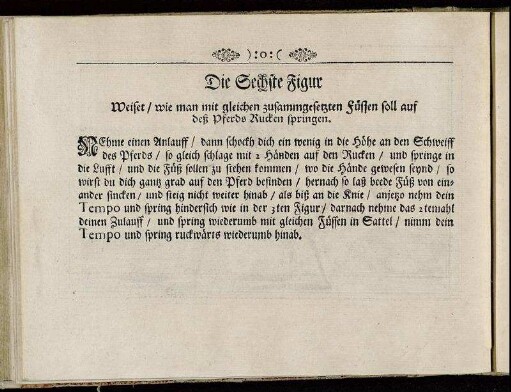 ):o:(
Die Sechste Figur
Weiset / wie man mit gleichen zusammgesetzten Füssen soll auf
deß Pferds Rucken springen.
NEhme einen Anlauff / dann schockh dich ein wenig in die Höhe an den Schweiff
des Pferds / so gleich schlage mit 2 Händen auf den Rucken / und springe in
die Lufft / und die Füß sollen zu stehen kommen / wo die Hände gewesen seynd / so
wirst du dich gantz grad auf den Pferd befinden / hernach so laß beede Füß von ein-
ander sincken / und steig nicht weiter hinab / als biß an die Knie / anjezo nehm dein
Tempo und spring hindersich wie in der 3ten Figur / darnach nehme das 2temahl
deinen Zulauff / und spring wiederumb mit gleichen Füssen in Sattel / nimm dein
Tempo und spring ruckwärts wiederumb hinab.